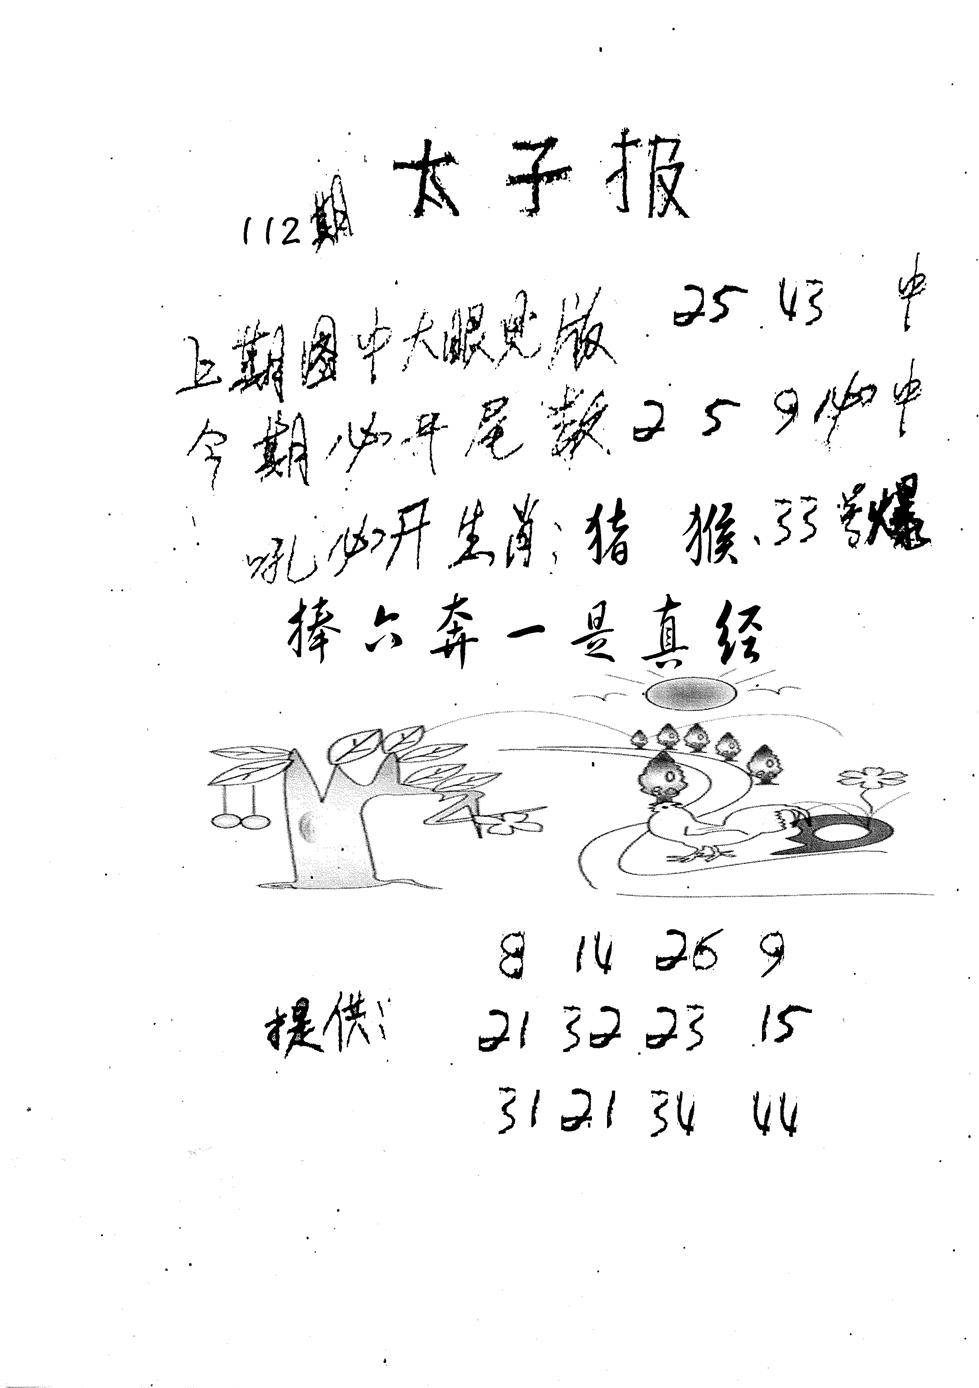 太子报
112期
上期图中大眼见版 25.43 中
今期必开尾数 2 5 9 必中
吼必开生肖：猪 猴、33号爆
捧六奔一是真经
8 14 26 9
提供： 21 32 23 15
31 21 34 44